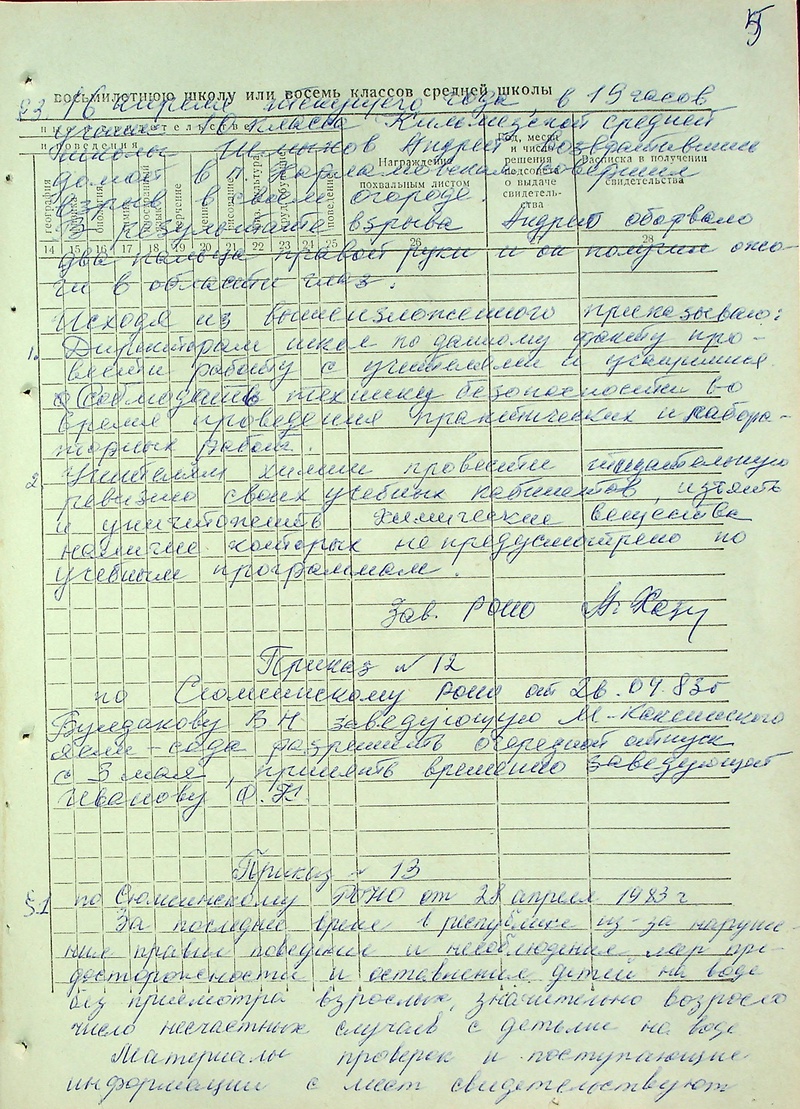 5
восьмилетнюю школу или восемь классов средней школы
§3. 16 апреля текущего года, в 19 часов
ученик 10 класса Кильмезской средней
школы Андрей возвратившись
домой в д. совершил
взрыв в своем огороде.
В результате взрыва Андрею оборвало
два пальца правой руки и он получил ожо-
ги в области глаз.
география
Награждение похвальным листом
Год, месяц и число решения педсовета о выдаче свидетельства
Расписка в получении свидетельства
14 15 16 17 18 19 20 21 22 23 24 25 26 28
Исходя из вышеизложенного приказываю:
1. Директорам школ по данному факту про-
вести работу с учителями и учащимися
о соблюдении техники безопасности во
время проведения практических и лабора-
торных работ.
2. Учителям химии провести тщательную
ревизию своих учебных кабинетов, изъять
и уничтожить химические вещества
наличие которых не предусмотрено по
учебным программам.
Зав. РОНО
Приказ № 12
по Сюмсинскому РОНО от 26.04.83г
Булдакову В Н заведующую М-Каксинского
ясли-сада разрешить очередной отпуск
с 3 мая, принять временно заведующей
Иванову О.К.
Приказ № 13
§1 по Сюмсинскому РОНО от 28 апреля 1983 г
За последнее время в республике из-за наруше-
ния правил поведения и несоблюдения мер пре-
досторожности и оставления детей на воде
без присмотра взрослых, значительно возросло
число несчастных случаев с детьми на воде
Материалы проверок и поступающие
информации с мест свидетельствуют